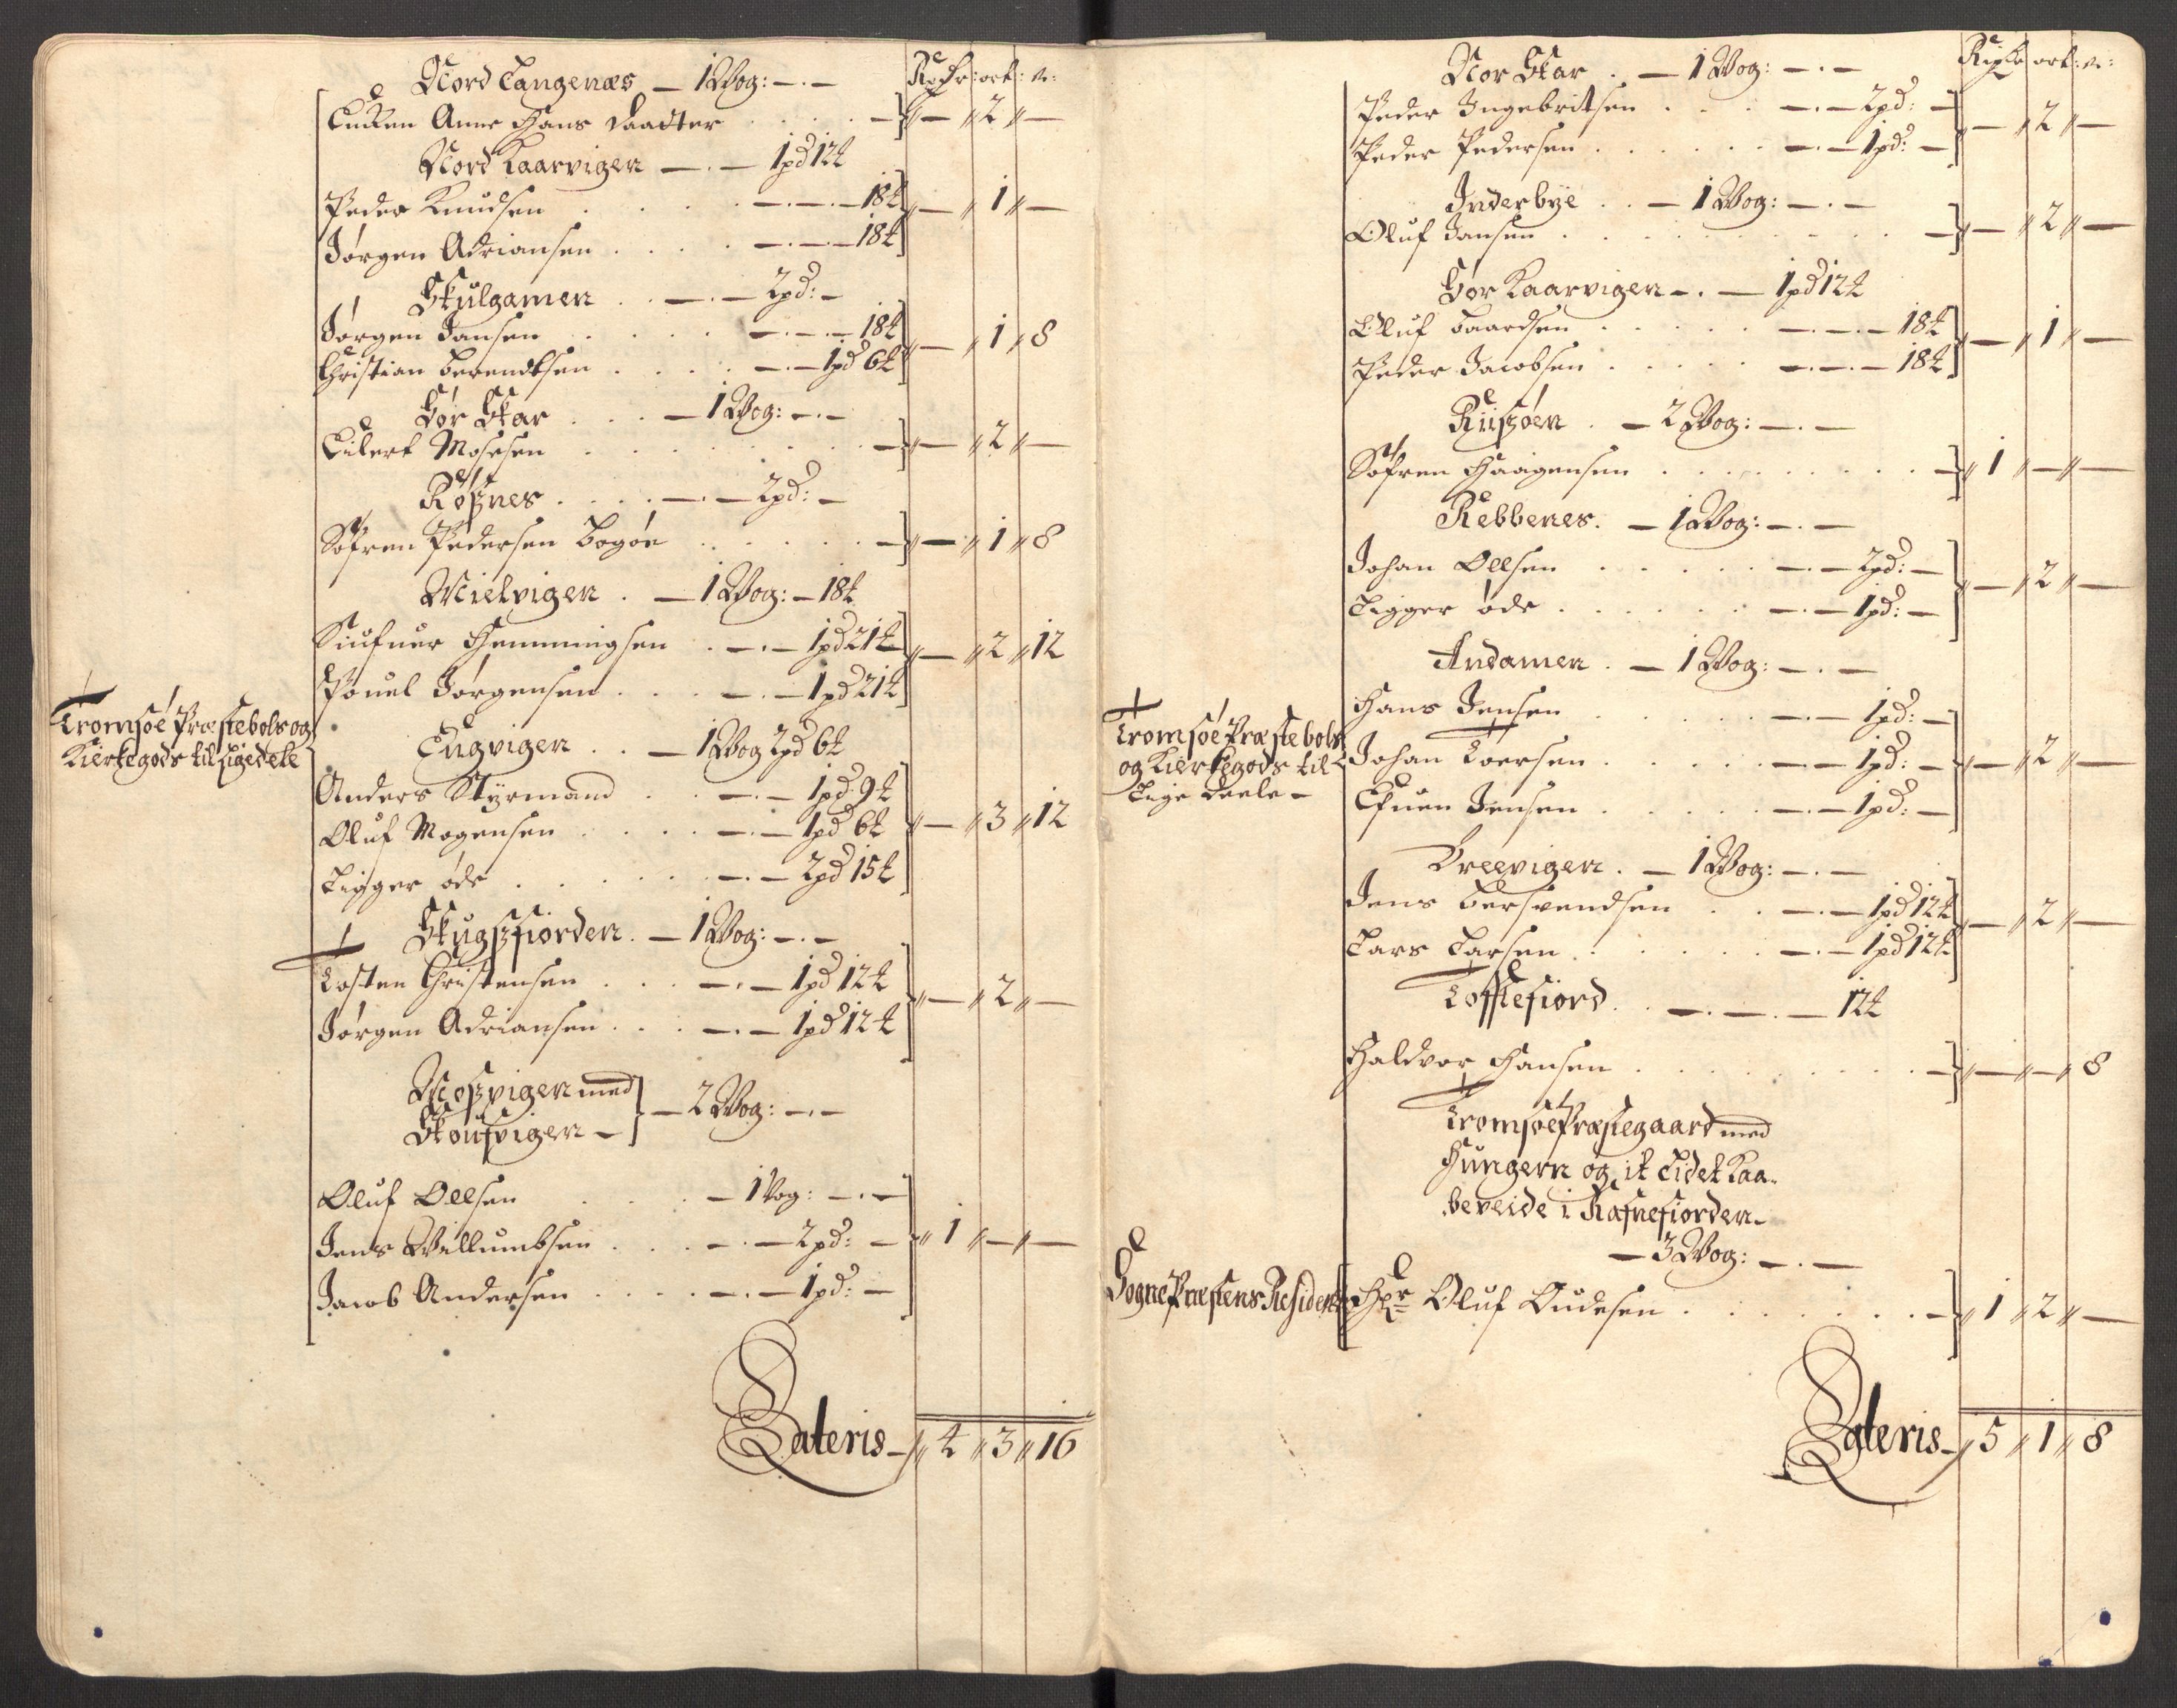 Nord Langenæs — 1 Wog: —.— Rixdr: ort: s:
Enken Anne Hans daatter . . . — „ — „ 2 „ —
Nord Kaarvigen —.— 1pd 12℔
Peder Knudsen . . . —.—.— 18℔ „ — „ 1 „ —
Jørgen Adriansen . . . —.—.— 18℔
Skulgamen . . —.— 2pd: —
Jørgen Jansen . . . —.—.— 18℔ „ — „ 1 „ 8
Christian Berendtsen . . . —.— 1pd 6℔
Sør Skar . . . — 1 Wog: —.—
Eilert Mosesen . . . — „ — „ 2 „ —
Røßnes . . . —.— 2pd: —
Søfren Pedersen Bogøe . . . — „ — „ 1 „ 8
Mielvigen . — 1 Wog: — 18℔
Hemmingsen . —.— 1pd 21℔ „ — „ 2 „ 12
Pouel Jørgensen . . . —.— 1pd 21℔
Tromsøe Præstebols og
Kierkegods til Ligedele
Engvigen . . — 1 Wog 2pd 6℔
Anders Styrmand . . —.— 1pd 9℔
Oluf Mogensen . . . —.— 1pd 6℔ „ — „ 3 „ 12
Ligger øde . . . —.— 2pd 15℔
Skugßfiorden . — 1 Wog: —.—
Tosten Christensen . . . —.— 1pd 12℔ „ — „ 2 „ —
Jørgen Adriansen . . . —.— 1pd 12℔
Moßvigen med
Skoufvigen — — 2 Wog: —.—
Oluf Olesen . . . — 1 Vog: —.—
Jens Willumbsen . . . —.— 2pd: — „ 1 „ — „ —
Jacob Andersen . . . —.— 1pd: —
Lateris — „ 4 „ 3 „ 16
Nor Skar . — 1 Wog: —.— Rixdr ort: s:
Peder Ingebritsen . . . —.— 2pd: — „ — „ 2 „ —
Peder Pedersen . . . —.— 1pd: —
Inderbye . . — 1 Wog: —.—
Oluf Jansen . . . — „ — „ 2 „ —
Sør Kaarvigen —.— 1pd 12℔
Oluf Baardsen . . . —.—.— 18℔ „ — „ 1 „ —
Peder Jacobsen . . . —.—.— 18℔
Riißøen . — 2 Wog: —.—
Søfren Haagensen . . . — „ 1 „ — „ —
Rebbenes . — 1 Wog: —.—
Johan Olesen . . . —.— 2pd: — „ — „ 2 „ —
Ligger øde . . . —.— 1pd: —
Andamen . — 1 Wog: —.—
Hans Jensen . . . —.— 1pd: —
Tromsøe Præstebols
og Kierkegods til
Lige deele —
Johan Toersen . . . —.— 1pd: — „ — „ 2 „ —
Efuen Jensen . . . —.— 1pd: —
Dreevigen . — 1 Wog: —.—
Jens Bersvendsen . . —.— 1pd 12℔ „ — „ 2 „ —
Lars Larsen . . . —.— 1pd 12℔
Tofftefiord . . —.—.— 12℔
Haldvor Hansen . . . — „ — „ — „ 8
Tromsøe Præstegaard med
Hungern og it lidet Kaa-
beveide i Rafnefiorden —
— 3 Wog: —.—
Sogne Præstens Residentz
Hr Oluf Oudesen . . . — „ 1 „ 2 „ —
Lateris — „ 5 „ 1 „ 8